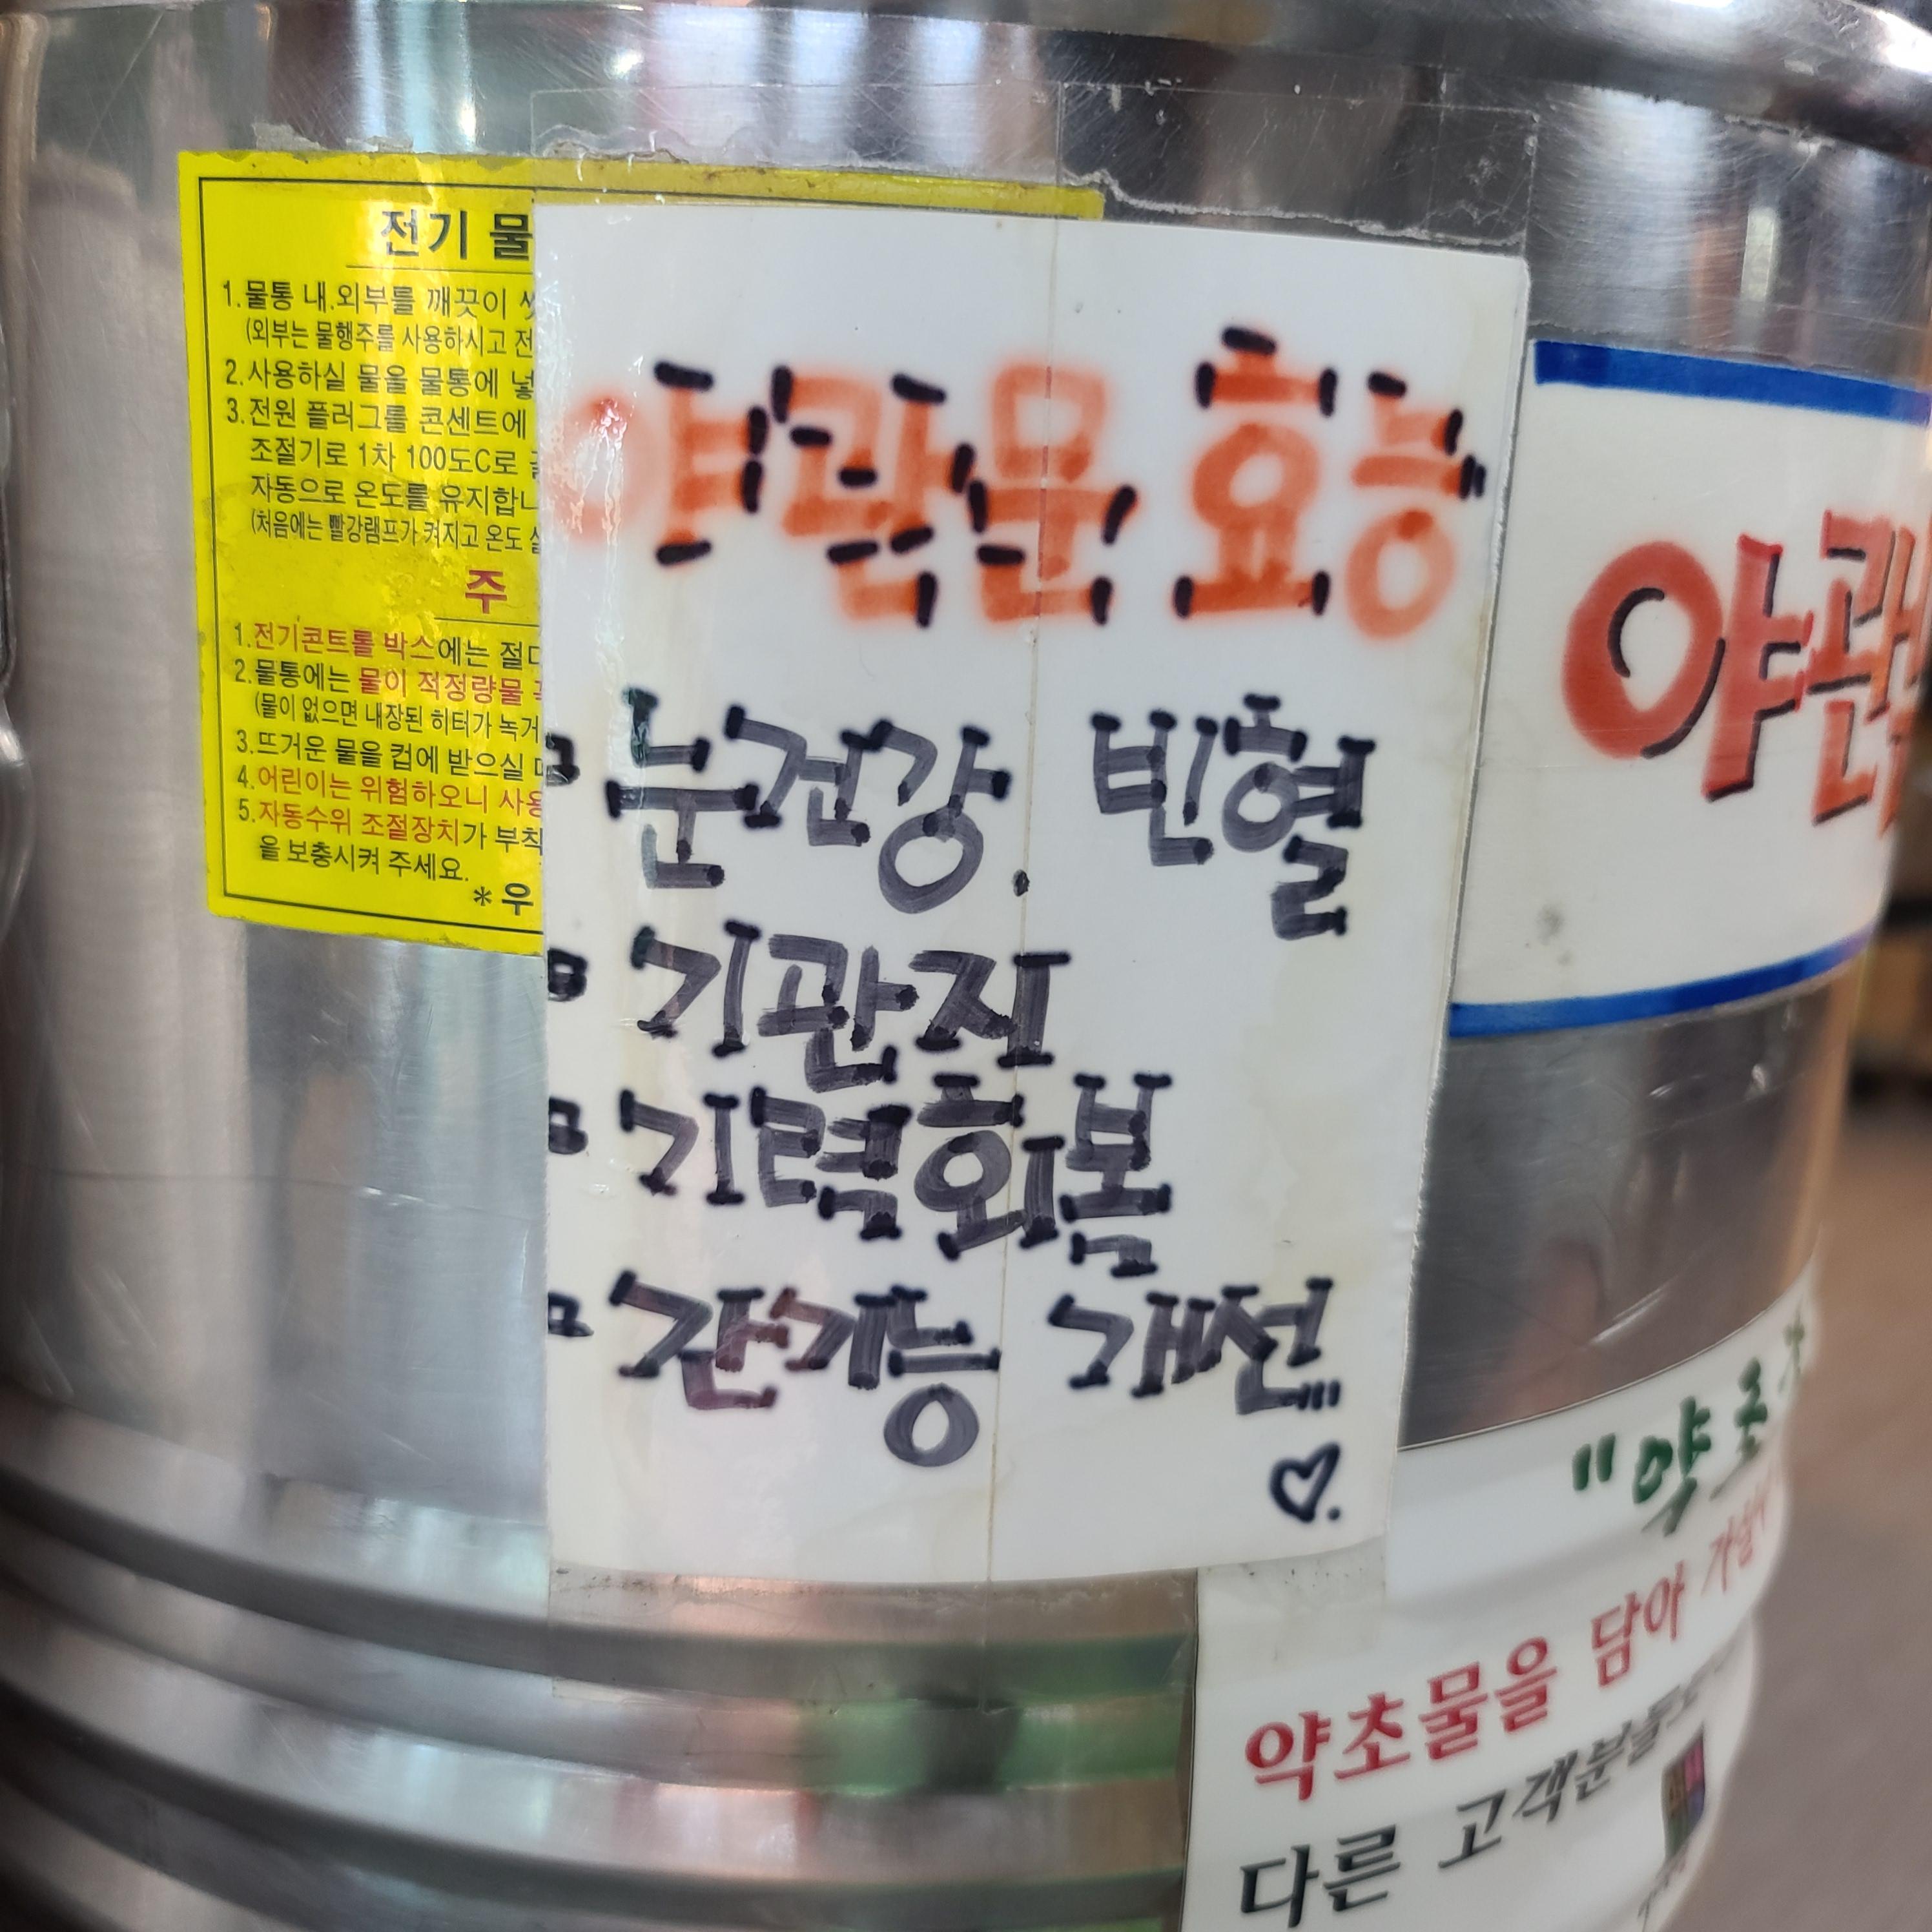 전기 물
1.물통 내.외부를 깨끗이
(외부는 물행주를 사용하시고 전
2.사용하실 물을 물통에 넣
3.전원 플러그를 콘센트에
조절기로 1차 100도C로
자동으로 온도를 유지합니
(처음에는 빨강램프가 켜지고 온도
주
1.전기콘트롤 박스에는 절대
2.물통에는 물이 적정량물
(물이 없으면 내장된 히터가 녹거
3.뜨거운 물을 컵에 받으실
4.어린이는 위험하오니 사용
5.자동수위 조절장치가 부착
을 보충시켜 주세요.
*우
야관문 효능
눈건강. 빈혈
기관지
기력회복
간기능 개선!!!
♡.
야관
"약초
약초물을 담아
다른 고객분들도